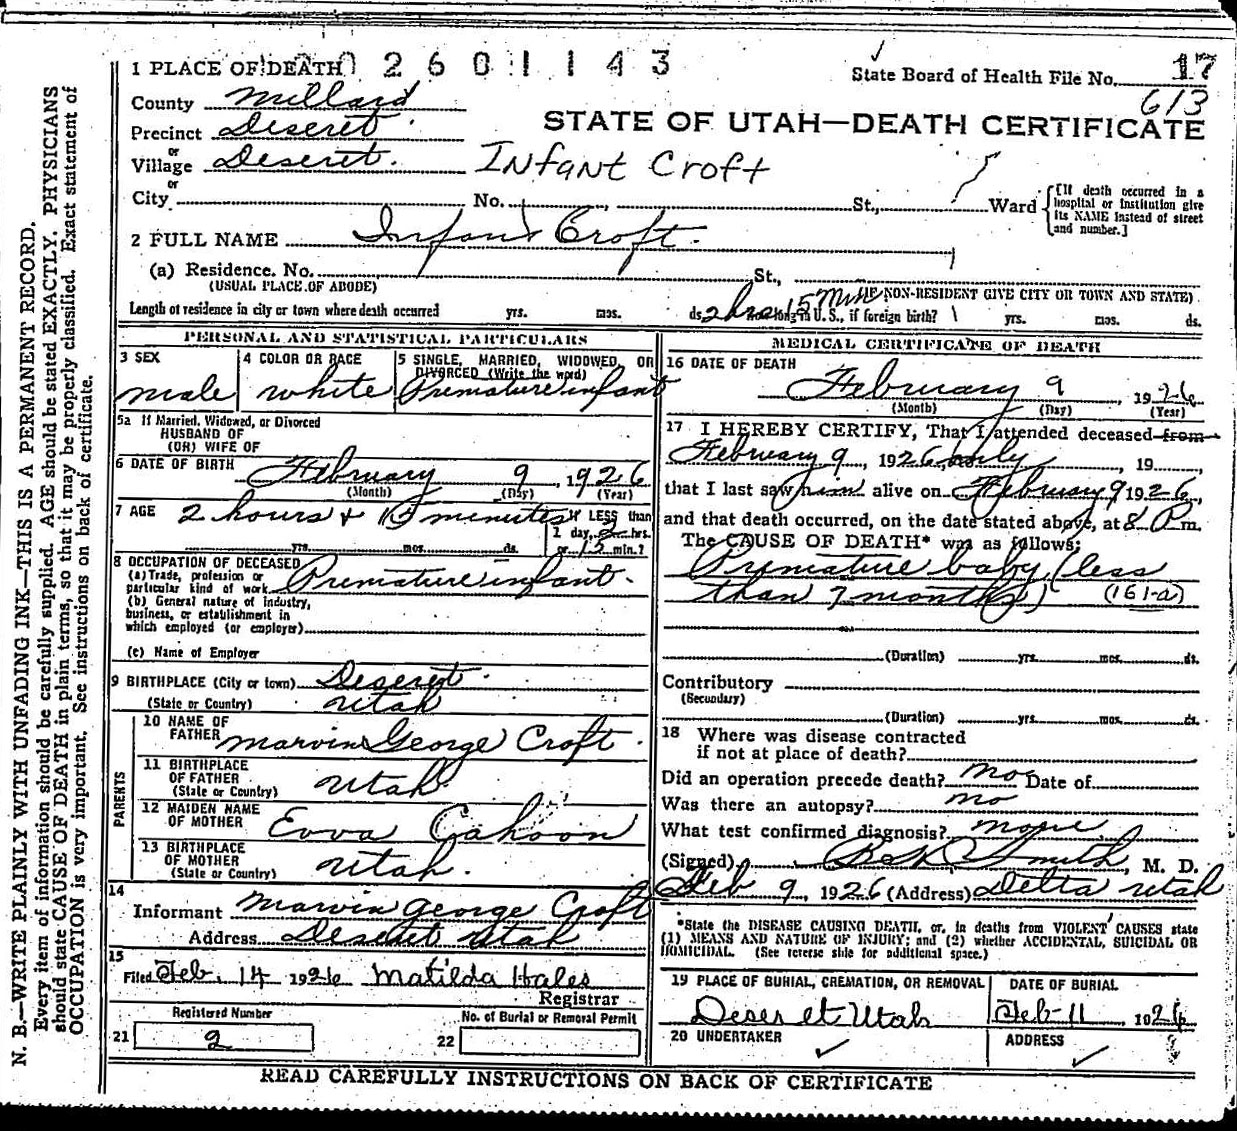 1 PLACE OF DEATH 0 2 6 0 1 1 4 3
State Board of Health File No. 17
613
County Millard
STATE OF UTAH—DEATH CERTIFICATE
Precinct Deseret
or
Village Deseret.
Infant Croft
or
City No. St., Ward
[If death occurred in a hospital or institution give its NAME instead of street and number.]
2 FULL NAME Infant Croft.
(a) Residence. No. St.,
(USUAL PLACE OF ABODE) NON-RESIDENT GIVE CITY OR TOWN AND STATE)
Length of residence in city or town where death occurred yrs. mos. ds. 2 hrs 15 Min in U. S., if foreign birth? yrs. mos. ds.
PERSONAL AND STATISTICAL PARTICULARS
3 SEX
male
4 COLOR OR RACE
white
5 SINGLE, MARRIED, WIDOWED, OR
DIVORCED (Write the word)
Premature infant
5a If Married, Widowed, or Divorced
HUSBAND OF
(OR) WIFE OF
6 DATE OF BIRTH February 9, 1926
(Month) (Day) (Year)
7 AGE 2 hours + 15 minutes
yrs. mos. ds.
If LESS than
1 day, 2 hrs.
or 15 min.?
8 OCCUPATION OF DECEASED
(a) Trade, profession or
particular kind of work Premature infant.
(b) General nature of industry,
business, or establishment in
which employed (or employer)
(c) Name of Employer
9 BIRTHPLACE (City or town) Deseret.
(State or Country) Utah
PARENTS
10 NAME OF
FATHER Marvin George Croft.
11 BIRTHPLACE
OF FATHER
(State or Country) Utah.
12 MAIDEN NAME
OF MOTHER Evva Cahoon
13 BIRTHPLACE
OF MOTHER
(State or Country) Utah.
14
Informant Marvin George Croft
Address Deseret Utah
15
Filed Feb. 14 1926 Matilda Hales
Registrar
Registered Number
21 2
No. of Burial or Removal Permit
22
MEDICAL CERTIFICATE OF DEATH
16 DATE OF DEATH
February 9, 1926
(Month) (Day) (Year)
17 I HEREBY CERTIFY, That I attended deceased from
February 9, 1926 only, 19
that I last saw him alive on February 9 1926,
and that death occurred, on the date stated above, at 8 P m.
The CAUSE OF DEATH* was as follows:
Premature baby (less
than 7 months) (161-a)
(Duration) yrs. mos. ds.
Contributory
(Secondary)
(Duration) yrs. mos. ds.
18 Where was disease contracted
if not at place of death?
Did an operation precede death? no Date of
Was there an autopsy? no
What test confirmed diagnosis? none
(Signed) Smith, M. D.
Feb 9, 1926 (Address) Delta Utah
*State the DISEASE CAUSING DEATH, or, in deaths from VIOLENT CAUSES state
(1) MEANS AND NATURE OF INJURY; and (2) whether ACCIDENTAL, SUICIDAL OR
HOMICIDAL. (See reverse side for additional space.)
19 PLACE OF BURIAL, CREMATION, OR REMOVAL
Deseret Utah
DATE OF BURIAL
Feb-11, 1926
20 UNDERTAKER
ADDRESS
READ CAREFULLY INSTRUCTIONS ON BACK OF CERTIFICATE
N. B.—WRITE PLAINLY WITH UNFADING INK—THIS IS A PERMANENT RECORD.
Every item of information should be carefully supplied. AGE should be stated EXACTLY. PHYSICIANS
should state CAUSE OF DEATH in plain terms, so that it may be properly classified. Exact statement of
OCCUPATION is very important. See instructions on back of certificate.